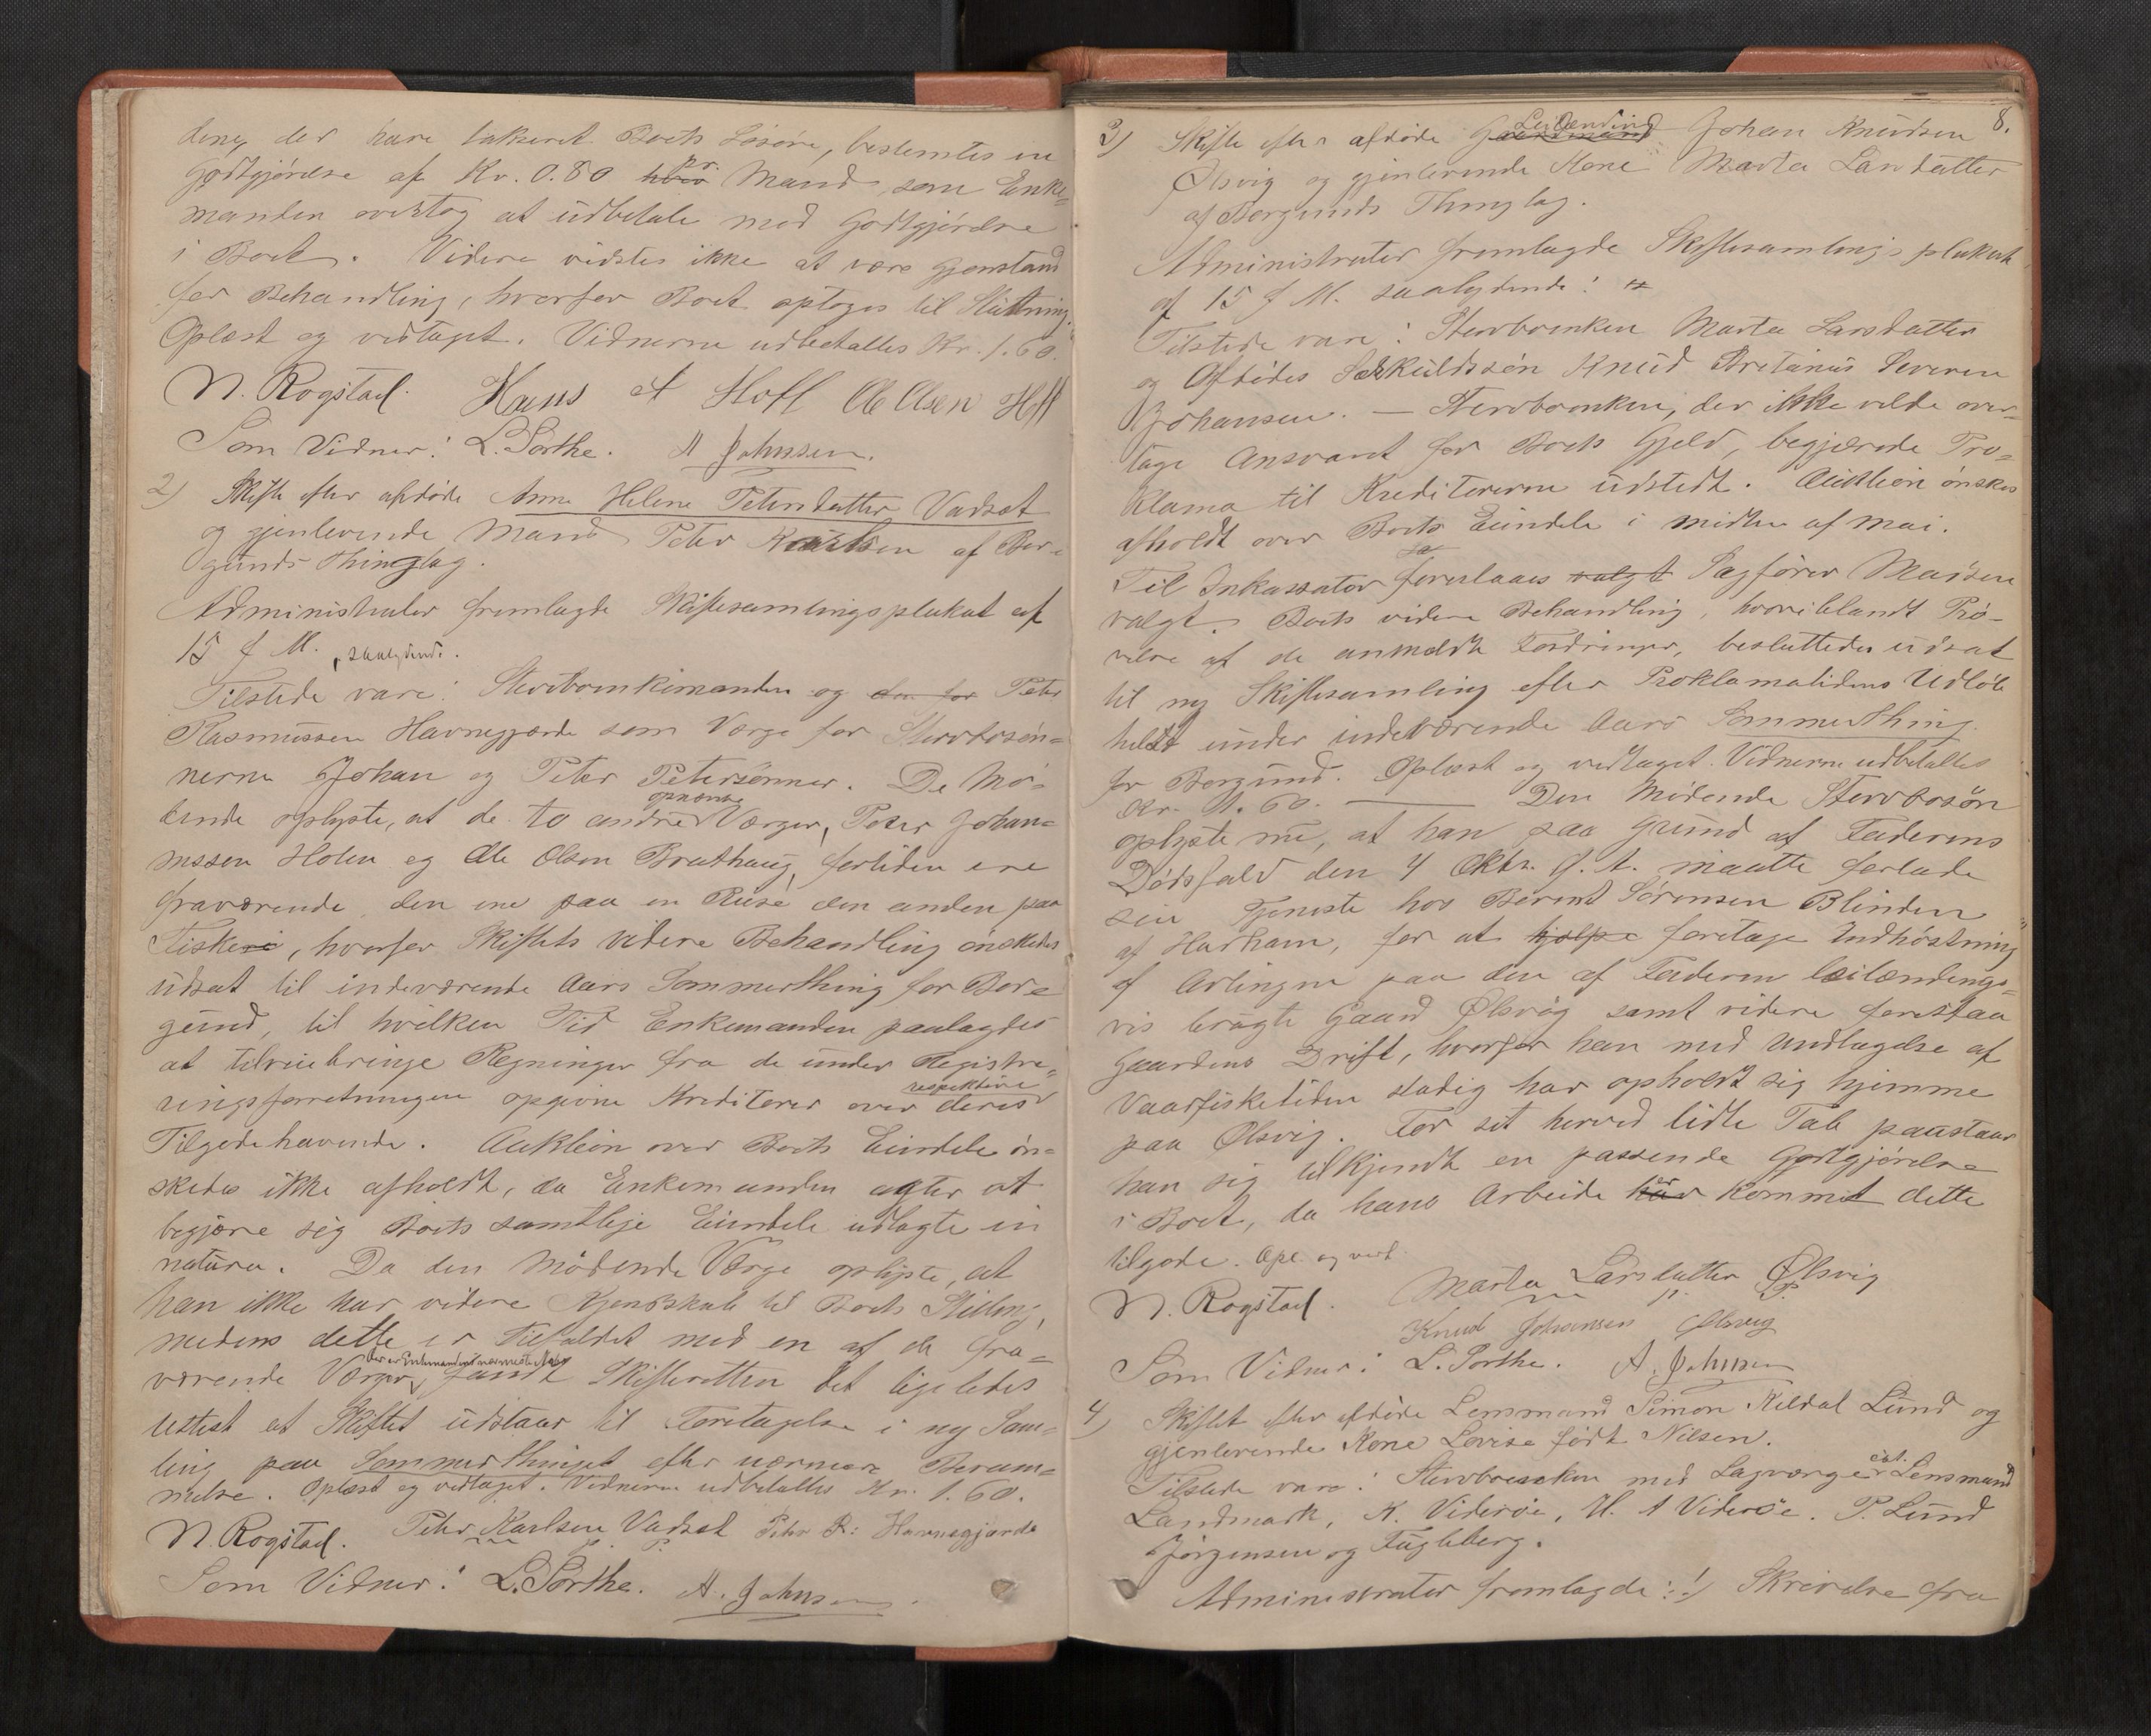 dene, der have takseret Boets Løsøre, bestemtes en
Godtgjørelse af Kr. 0.80 hver pr. Mand, som Enke-
manden overtog at udbetale mod Godtgjørelse
i Boet. Videre vidstes ikke at være Gjenstand
for Behandling, hvorfor Boet optoges til Slutning.
Oplæst og vedtaget. Vidnerne udbetaltes Kr. 1.60.
N. Rogstad. Hans A Hoff Ole Olsen Hoff
Som Vidner: L. Sorthe. A Johnsen.
2) Skifte efter afdøde Anne Helene Petersdatter Vadset
og gjenlevende Mand Peter Karlsen af Bor-
gunds Thinglag.
Administrator fremlagde Skiftesamlingsplakat af
15 f M. saalydende.
Tilstede vare: Stervboenkemanden og den for Peter
Rasmussen Havnegjærde som Værge for Stervbosøn-
nerne Johan og Peter Peterssønner. De Mø-
dende oplyste, at de to andre opnævnte Værger, Peter Johan-
nessen Holen og Ole Olsen Brathaug, fortiden ere
fraværende, den ene paa en Reise den anden paa
Fiskeri, hvorfor Skiftets videre Behandling ønskedes
udsat til indeværende Aars Sommerthing for Bor-
gund, til hvilken Tid Enkemanden paalagdes
at tilveiebringe Regninger fra de under Registre-
ringsforretningen opgivne Kreditorer over deres respektive
Tilgodehavende. Auktion over Boets Eiendele øn-
skedes ikke afholdt, da Enkemanden agter at
begjære sig Boets samtlige Eiendele udlagte in
natura. Da den Mødende Værge oplyste, at
han ikke har videre Kjendskab til Boets Stilling,
medens dette er Tilfældet med en af de fra-
værende Værger, der er Enkemandens nærmeste Nabo, fandt Skifteretten det ligeledes
rettest at Skiftet udstaar til Foretagelse i ny Sam-
ling paa Sommerthinget efter nærmere Beram-
melse. Oplæst og vedtaget. Vidnerne udbetaltes Kr. 1.60.
N. Rogstad. Peter Karlsen Vadset Peter R: Havnegjærde
m. p. P.
Som Vidner: L. Sorthe. A. Johnsen.
8.
3) Skifte efter afdøde Gaardmand Leilænding Johan Knudsen
Ølsvig og gjenlevende Kone Marta Larsdatter
af Borgunds Thinglag.
Administrator fremlagde Skiftesamlingsplakat
af 15 f M. saalydende:
Tilstede vare: Stervboenken Marta Larsdatter
og Afdødes Særkuldssøn Knud Kretanus Severin
Johansen. — Stervboenken, der ikke vilde over-
tage Ansvaret for Boets Gjeld, begjærede Pro-
klama til Kreditorerne udstedt. Auktion ønskes
afholdt over Boets Eiendele i Midten af Mai.
Til Inkassator foreslaaes valgt Sagfører Madsen
valgt. Boets videre Behandling, hvoriblandt Prø-
velse af de anmeldte Fordringer, besluttedes udsat
til ny Skiftesamling efter Proklamatidens Udløb
holdt under indeværende Aars Sommerthing
for Borgund. Oplæst og vedtaget. Vidnerne udbetaltes
Kr. 1.60. — Den Mødende Stervbosøn
oplyste nu, at han paa Grund af Faderens
Dødsfald den 4 Oktbr. f. A. maatte forlade
sin Tjeneste hos Berent Sørensen Blinden
af Harham, for at hjelpe foretage Indhøstning
af Avlingen paa den af Faderen leilændings-
vis brugte Gaard Ølsvig samt videre forestaa
Gaardens Drift, hvorfor han med Undtagelse af
Vaarfisketiden stadig har opholdt sig hjemme
paa Ølsvig. For sit herved lidte Tab paastaar
han sig tilkjendt en passende Godtgjørelse
i Boet, da hans Arbeide har er kommet dette
tilgode. Opl. og vedt.
N. Rogstad. Marta Larsdatter Ølsvig
m. p. P.
Knud Johansen Ølsvig
Som Vidner: L. Sorthe. A. Johnsen
4) Skiftet efter afdøde Lensmand Simon Kildal Lund og
gjenlevende Kone Lovise født Nilsen.
Tilstede vare: Stervboenken med Lagværge cst. Lensmand
Landmark, K. Viderøe, H. A Viderøe. P. Lund
Jørgensen og Fugleberg.
Administrator fremlagde: 1) Skrivelse fra